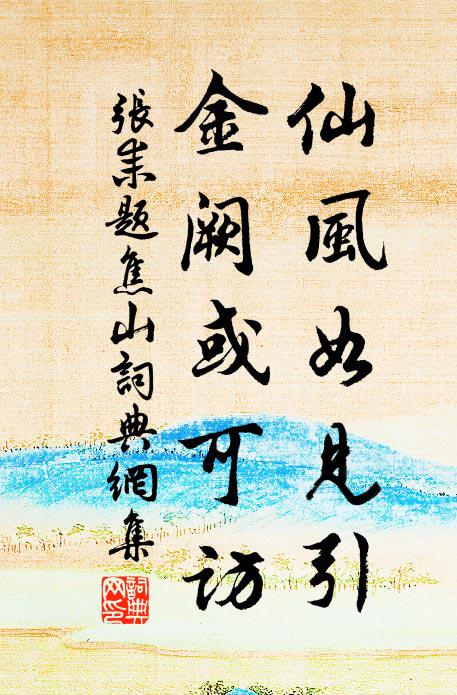 仙風如見引
金闕或可訪
張耒題焦山詞典網集
詞典網印